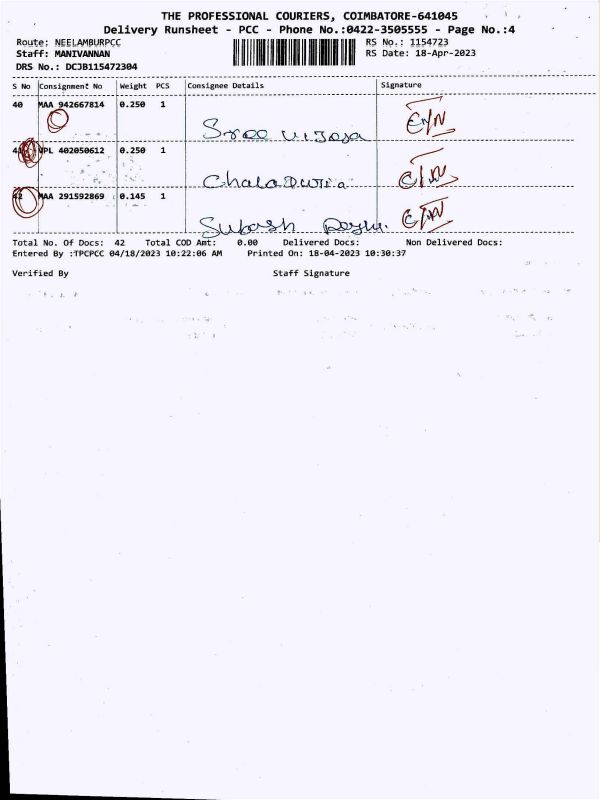 THE PROFESSIONAL COURIERS, COIMBATORE-641045
Delivery Runsheet - PCC - Phone No.:0422-3505555 - Page No.:4
Route: NEELAMBURPCC RS No.: 1154723
Staff: MANIVANNAN RS Date: 18-Apr-2023
DRS No.: DCJB115472304
S No Consignment No Weight PCS Consignee Details Signature
40 MAA 942667814 0.250 1
Sree
VPL 402050612 0.250 1
42 MAA 291592869 0.145 1
Subash
Total No. Of Docs: 42 Total COD Amt: 0.00 Delivered Docs: Non Delivered Docs:
Entered By :TPCPCC 04/18/2023 10:22:06 AM Printed On: 18-04-2023 10:30:37
Verified By Staff Signature